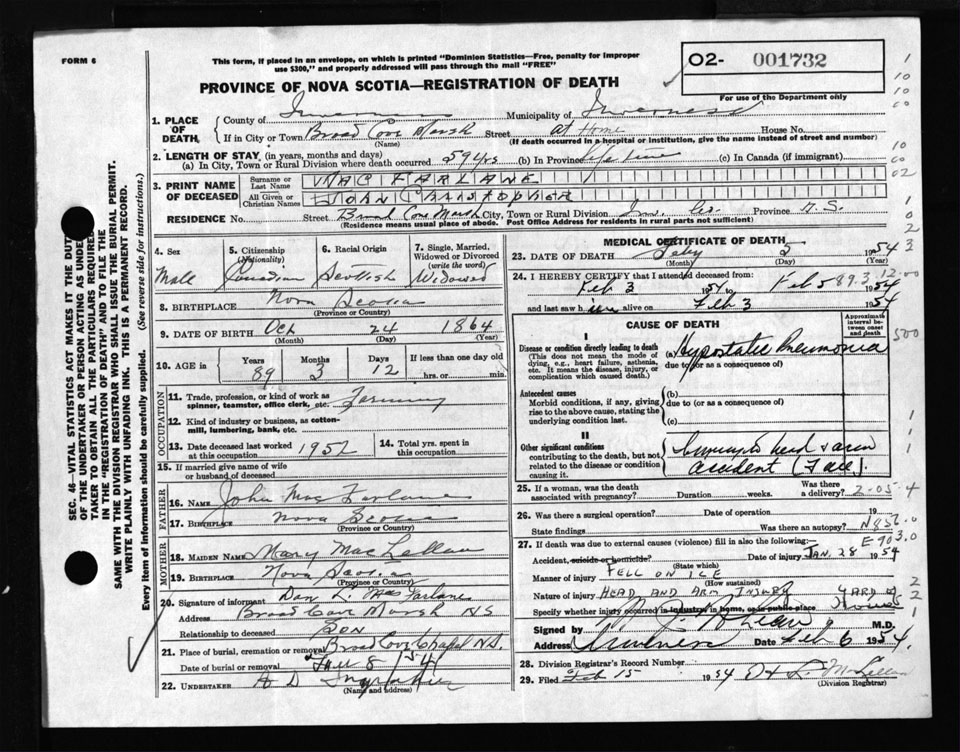 FORM 6
This form, if placed in an envelope, on which is printed "Dominion Statistics—Free, penalty for improper
use $300," and properly addressed will pass through the mail "FREE"
O2- 001732
For use of the Department only
PROVINCE OF NOVA SCOTIA—REGISTRATION OF DEATH
1. PLACE OF DEATH. County of Inverness Municipality of Inverness
If in City or Town Broad Cove Marsh Street at Home House No.
(Name) (If death occurred in a hospital or institution, give the name instead of street and number)
2. LENGTH OF STAY (in years, months and days)
(a) In City, Town or Rural Division where death occurred 59 yrs (b) In Province life time (c) In Canada (if immigrant)
3. PRINT NAME OF DECEASED Surname or Last Name MAC FARLANE
All Given or Christian Names JOHN CHRISTOPHER
RESIDENCE No. Street Broad Cove Marsh City, Town or Rural Division Inv. Co. Province N.S.
(Residence means usual place of abode. Post Office Address for residents in rural parts not sufficient)
4. Sex Male
5. Citizenship (Nationality) Canadian
6. Racial Origin Scottish
7. Single, Married, Widowed or Divorced (write the word) Widowed
8. BIRTHPLACE Nova Scotia
(Province or Country)
9. DATE OF BIRTH Oct 24 1864
(Month) (Day) (Year)
10. AGE in Years 89 Months 3 Days 12 If less than one day old
hrs. or min.
OCCUPATION
11. Trade, profession, or kind of work as spinner, teamster, office clerk, etc. Farming
12. Kind of industry or business, as cotton-mill, lumbering, bank, etc.
13. Date deceased last worked at this occupation 1952
14. Total yrs. spent in this occupation
15. If married give name of wife or husband of deceased
FATHER
16. NAME John MacFarlane
17. Birthplace Nova Scotia
(Province or Country)
MOTHER
18. MAIDEN NAME Mary MacLellan
19. BIRTHPLACE Nova Scotia
(Province or Country)
20. Signature of informant Dan L. MacFarlane
Address Broad Cove Marsh N.S
Relationship to deceased Son
21. Place of burial, cremation or removal Broad Cove Chapel N.S.
Date of burial or removal 8/54
22. UNDERTAKER A D
(Name and address)
MEDICAL CERTIFICATE OF DEATH
23. DATE OF DEATH Feby 5 1954
(Month) (Day)
24. I HEREBY CERTIFY that I attended deceased from:
Feb 3 1954 to Feb 5 1954
and last saw him alive on Feb 3 1954
CAUSE OF DEATH
Approximate interval between onset and death
I
Disease or condition directly leading to death (a) Hypostatic Pneumonia
(This does not mean the mode of dying, e.g., heart failure, asthenia, etc. It means the disease, injury, or complication which caused death.
due to (or as a consequence of)
Antecedent causes (b)
Morbid conditions, if any, giving rise to the above cause, stating the underlying condition last.
due to (or as a consequence of)
(c)
II
Other significant conditions
contributing to the death, but not related to the disease or condition causing it.
Injury to head & arm
accident (Fall).
25. If a woman, was the death associated with pregnancy? Duration weeks. Was there a delivery?
26. Was there a surgical operation? Date of operation 19
State findings Was there an autopsy? N856.0
27. If death was due to external causes (violence) fill in also the following:— E903.0
Accident, suicide or homicide? Date of injury JAN. 28 1954
(State which)
Manner of injury FELL ON ICE
(How sustained)
Nature of injury HEAD AND ARM INJURY
Specify whether injury occurred in industry, in home, or in public place YARD Home
Signed by M.D.
Address Inverness Date Feb 6 1954
28. Division Registrar's Record Number
29. Filed Feb 15 1954
(Division Registrar)
SEC. 46—VITAL STATISTICS ACT MAKES IT THE DUTY
OF THE UNDERTAKER OR PERSON ACTING AS UNDERTAKER TO OBTAIN ALL THE PARTICULARS REQUIRED
IN THE "REGISTRATION OF DEATH" AND TO FILE THE
SAME WITH THE DIVISION REGISTRAR WHO SHALL ISSUE THE BURIAL PERMIT.
WRITE PLAINLY WITH UNFADING INK. THIS IS A PERMANENT RECORD.
Every item of information should be carefully supplied. (See reverse side for instructions.)